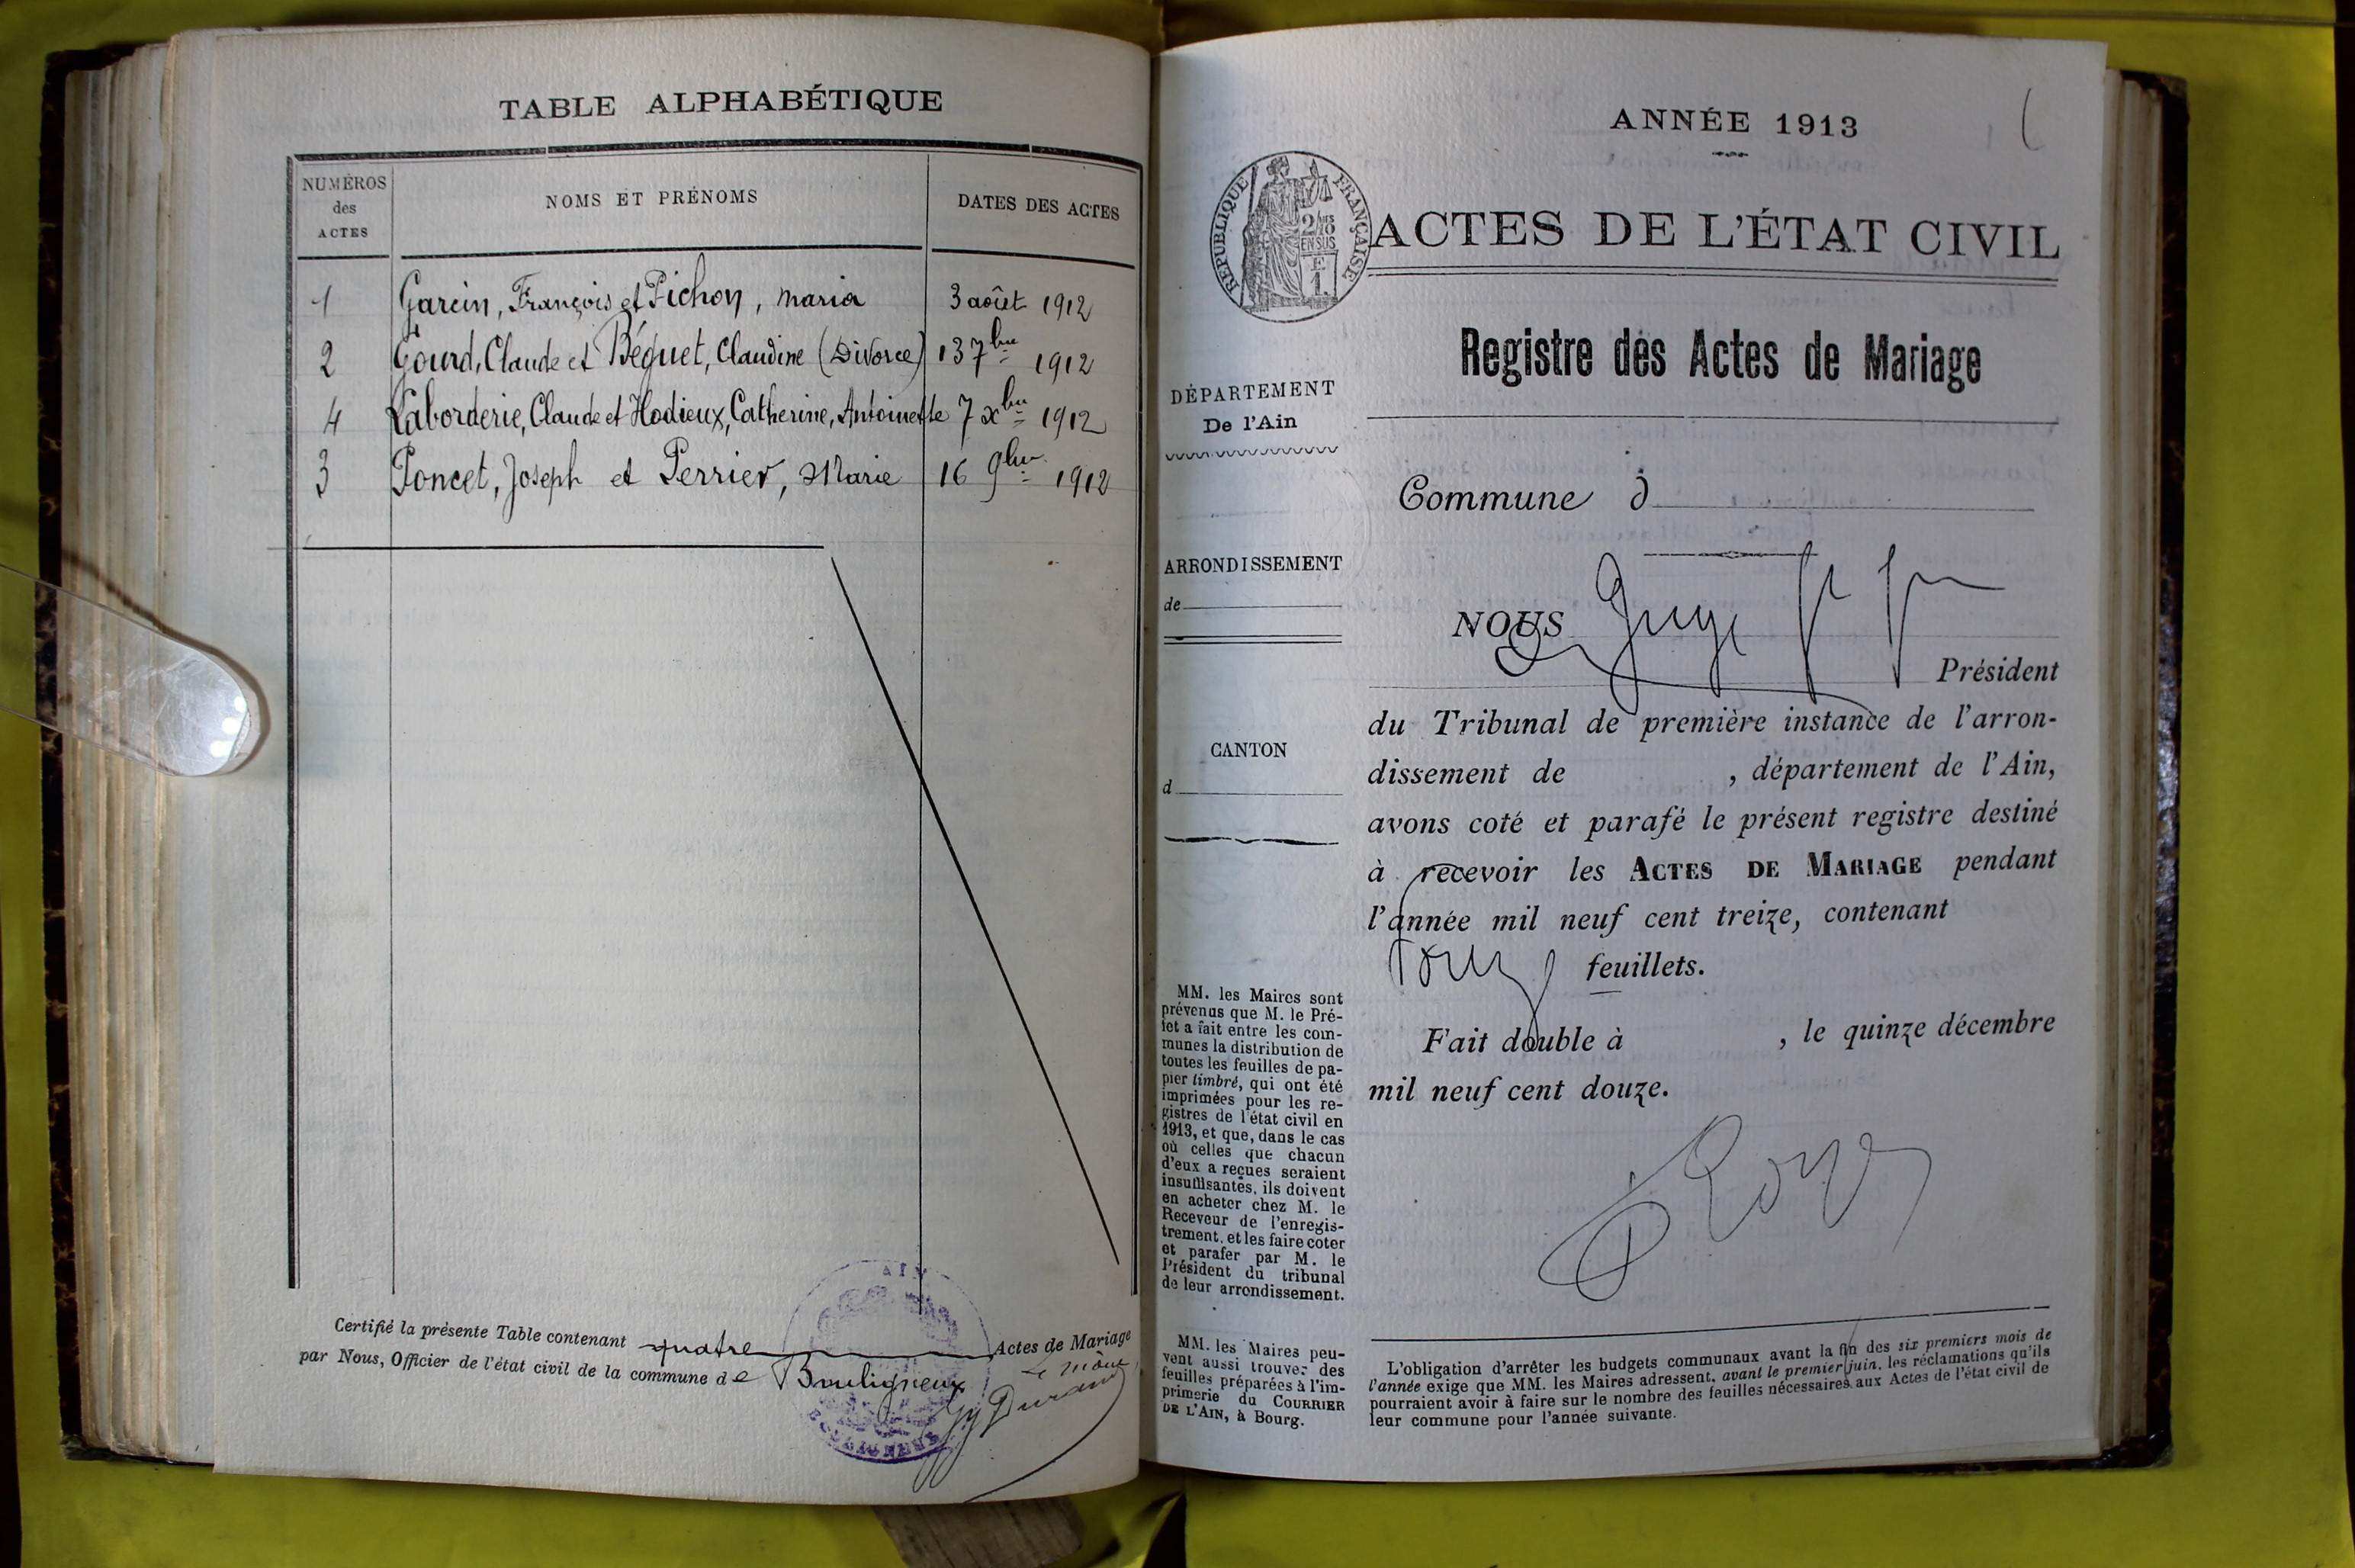 TABLE ALPHABÉTIQUE
NUMÉROS
des
ACTES
NOMS ET PRÉNOMS
DATES DES ACTES
1 Garcin, François et Pichon, Maria 3 août 1912
2 Gourd, Claude et Béguet, Claudine (Divorce) 13 7bre 1912
4 Laborderie, Claude et Hodieux, Catherine, Antoinette 7 xbre 1912
3 Poncet, Joseph et Perrier, Marie 16 9bre 1912
Certifié la présente Table contenant quatre Actes de Mariage
par Nous, Officier de l'état civil de la commune de Bouligneux
Le Maire
Durand
AIN
ANNÉE 1913
RÉPUBLIQUE FRANÇAISE
2/10
EN SUS
ACTES DE L'ÉTAT CIVIL
Registre des Actes de Mariage
DÉPARTEMENT
De l'Ain
Commune d
ARRONDISSEMENT
de
NOUS
Président
du Tribunal de première instance de l'arron-
dissement de , département de l'Ain,
CANTON
d
avons coté et parafé le présent registre destiné
à recevoir les ACTES DE MARIAGE pendant
l'année mil neuf cent treize, contenant
feuillets.
Fait double à , le quinze décembre
mil neuf cent douze.
MM. les Maires sont
prévenus que M. le Pré-
fet a fait entre les com-
munes la distribution de
toutes les feuilles de pa-
pier timbré, qui ont été
imprimées pour les re-
gistres de l'état civil en
1913, et que, dans le cas
où celles que chacun
d'eux a reçues seraient
insuffisantes, ils doivent
en acheter chez M. le
Receveur de l'enregis-
trement, et les faire coter
et parafer par M. le
Président du tribunal
de leur arrondissement.
MM. les Maires peu-
vent aussi trouver des
feuilles préparées à l'im-
primerie du COURRIER
DE L'AIN, à Bourg.
L'obligation d'arrêter les budgets communaux avant la fin des six premiers mois de
l'année exige que MM. les Maires adressent, avant le premier juin, les réclamations qu'ils
pourraient avoir à faire sur le nombre des feuilles nécessaires aux Actes de l'état civil de
leur commune pour l'année suivante.